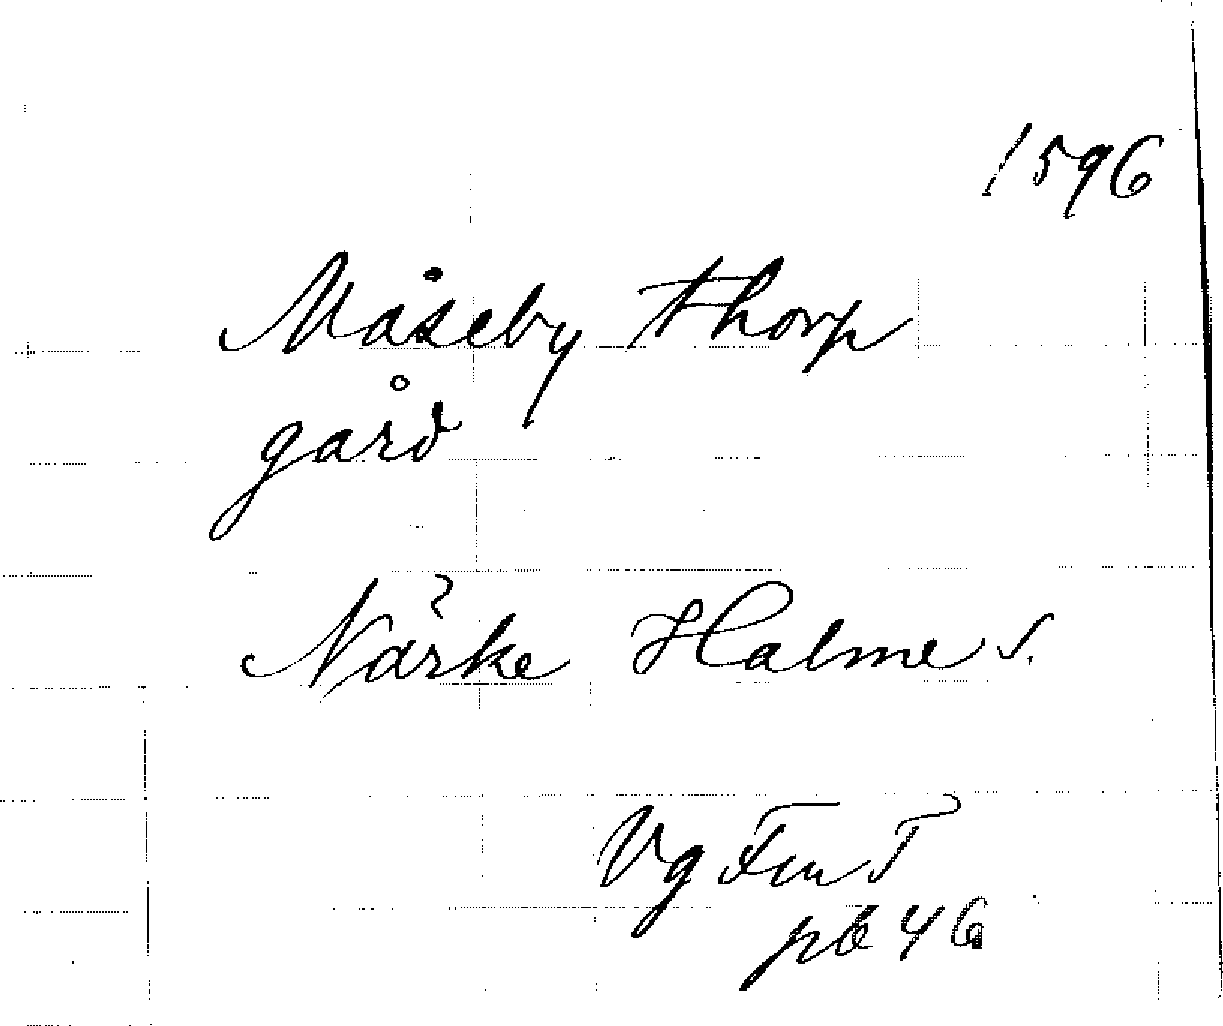 1596
Måseby thorp
gård
Närke Halme s.
Vg Fm T
pb 46